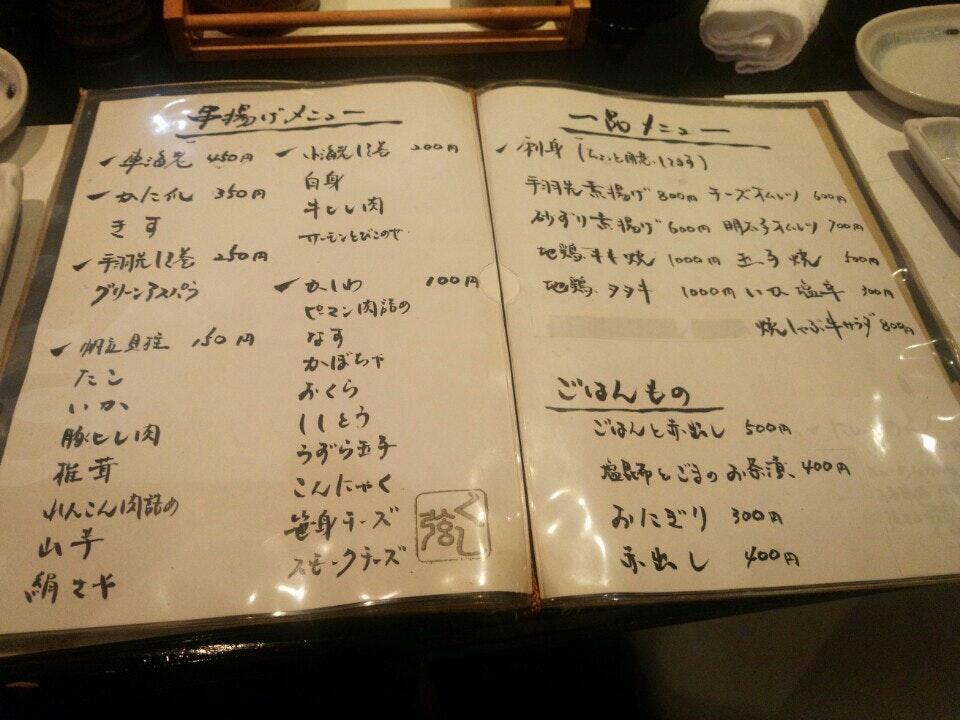 串揚げメニュー
車海老 450円
かに爪 350円
きす
手羽先しそ巻 250円
グリーンアスパラ
帆立貝柱 150円
たこ
いか
豚ヒレ肉
椎茸
れんこん肉詰め
山芋
絹さや
小海老しそ巻 200円
白身
牛ヒレ肉
サーモンとびこのせ
かしわ 100円
ピマン肉詰め
なす
かぼちゃ
おくら
ししとう
うずら玉子
こんにゃく
笹身チーズ
スモークチーズ
一品メニュー
刺身
手羽先素揚げ 800円 チーズオムレツ 600円
砂ずり素揚げ 600円 明太子オムレツ 700円
地鶏もも焼 1000円 玉子焼 500円
地鶏タタキ 1000円 いか塩辛 300円
焼しゃぶ牛サラダ 800円
ごはんもの
ごはんと赤出し 500円
塩昆布とごまのお茶漬 400円
おにぎり 300円
赤出し 400円